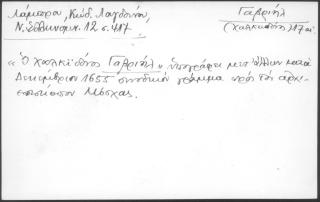 Λάμπρου, Κώδ. Λαυδιανοί,
Ν. Ἑλληνομν. 12 σ. 417
Γαβριήλ
(Χαλκηδόνος) 17 αἰ.
« Ὁ Χαλκηδόνος Γαβριήλ » ὑπογράφει μετ' ἄλλων κατὰ
Δεκέμβριον 1655 συνοδικὸν γράμμα πρὸς τὸν ἀρχι-
επίσκοπον Μόσχας.